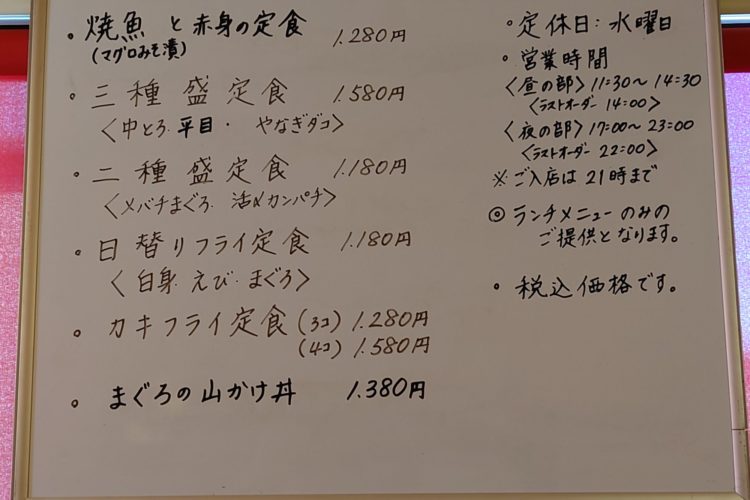 ・焼魚と赤身の定食 1.280円
(マグロみそ漬)
・三種盛定食 1.580円
〈中とろ.平目・やなぎダコ〉
・二種盛定食 1.180円
〈メバチまぐろ.活〆カンパチ〉
・日替りフライ定食 1.180円
〈白身.えび.まぐろ〉
・カキフライ定食(3コ) 1.280円
(4コ) 1.580円
・まぐろの山かけ丼 1.380円
・定休日:水曜日
・営業時間
〈昼の部〉11:30~14:30
〈ラストオーダー 14:00〉
〈夜の部〉17:00~23:00
〈ラストオーダー 22:00〉
※ご入店は21時まで
◎ランチメニューのみの
ご提供となります。
・税込価格です。